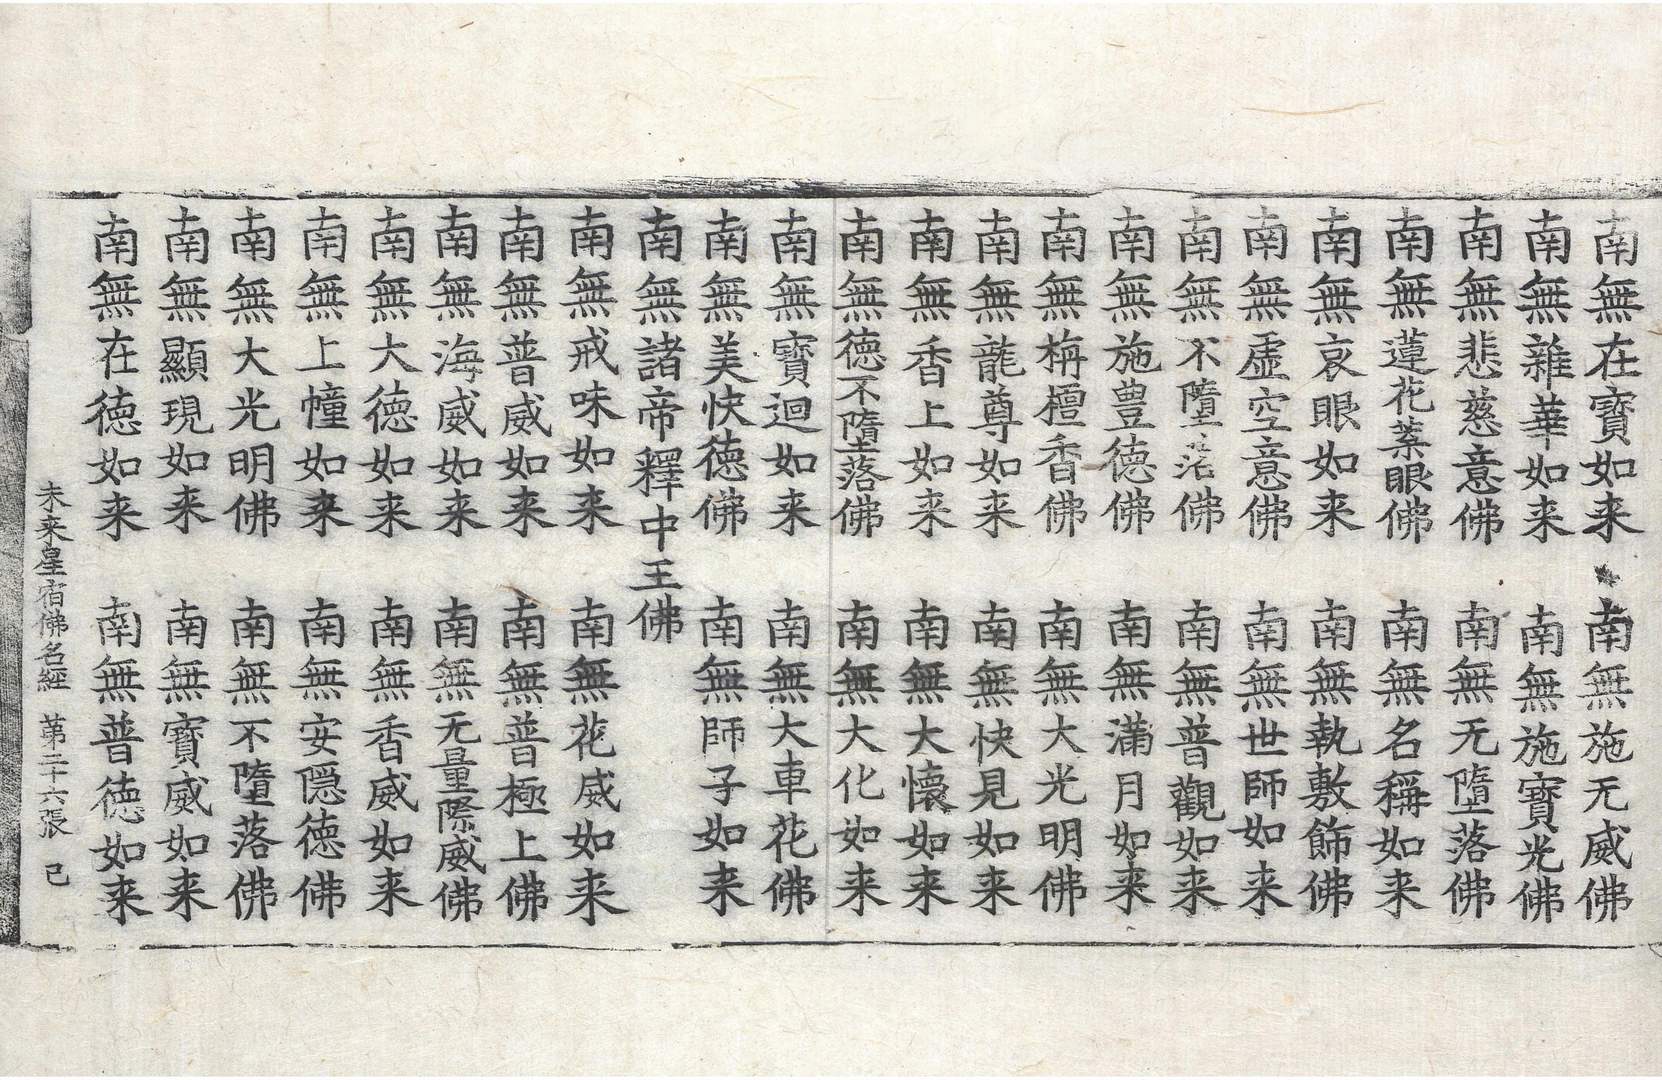 南無在寶如来 南無施无威佛
南無雜華如来 南無施寶光佛
南無悲慈意佛 南無无墮落佛
南無蓮花葉眼佛 南無名稱如来
南無哀眼如来 南無執敷飾佛
南無虛空意佛 南無世師如来
南無不墮落佛 南無普觀如来
南無施豊德佛 南無滿月如来
南無栴檀香佛 南無大光明佛
南無龍尊如来 南無快見如来
南無香上如来 南無大懷如来
南無德不墮落佛 南無大化如来
南無寶迴如来 南無大車花佛
南無美快德佛 南無師子如来
南無諸帝釋中王佛
南無戒味如来 南無花威如来
南無普威如来 南無普極上佛
南無海威如来 南無无量際威佛
南無大德如来 南無香威如来
南無上幢如来 南無安隠德佛
南無大光明佛 南無不墮落佛
南無顯現如来 南無寶威如来
南無在德如来 南無普德如来
未来星宿佛名經 苐二十六張 己